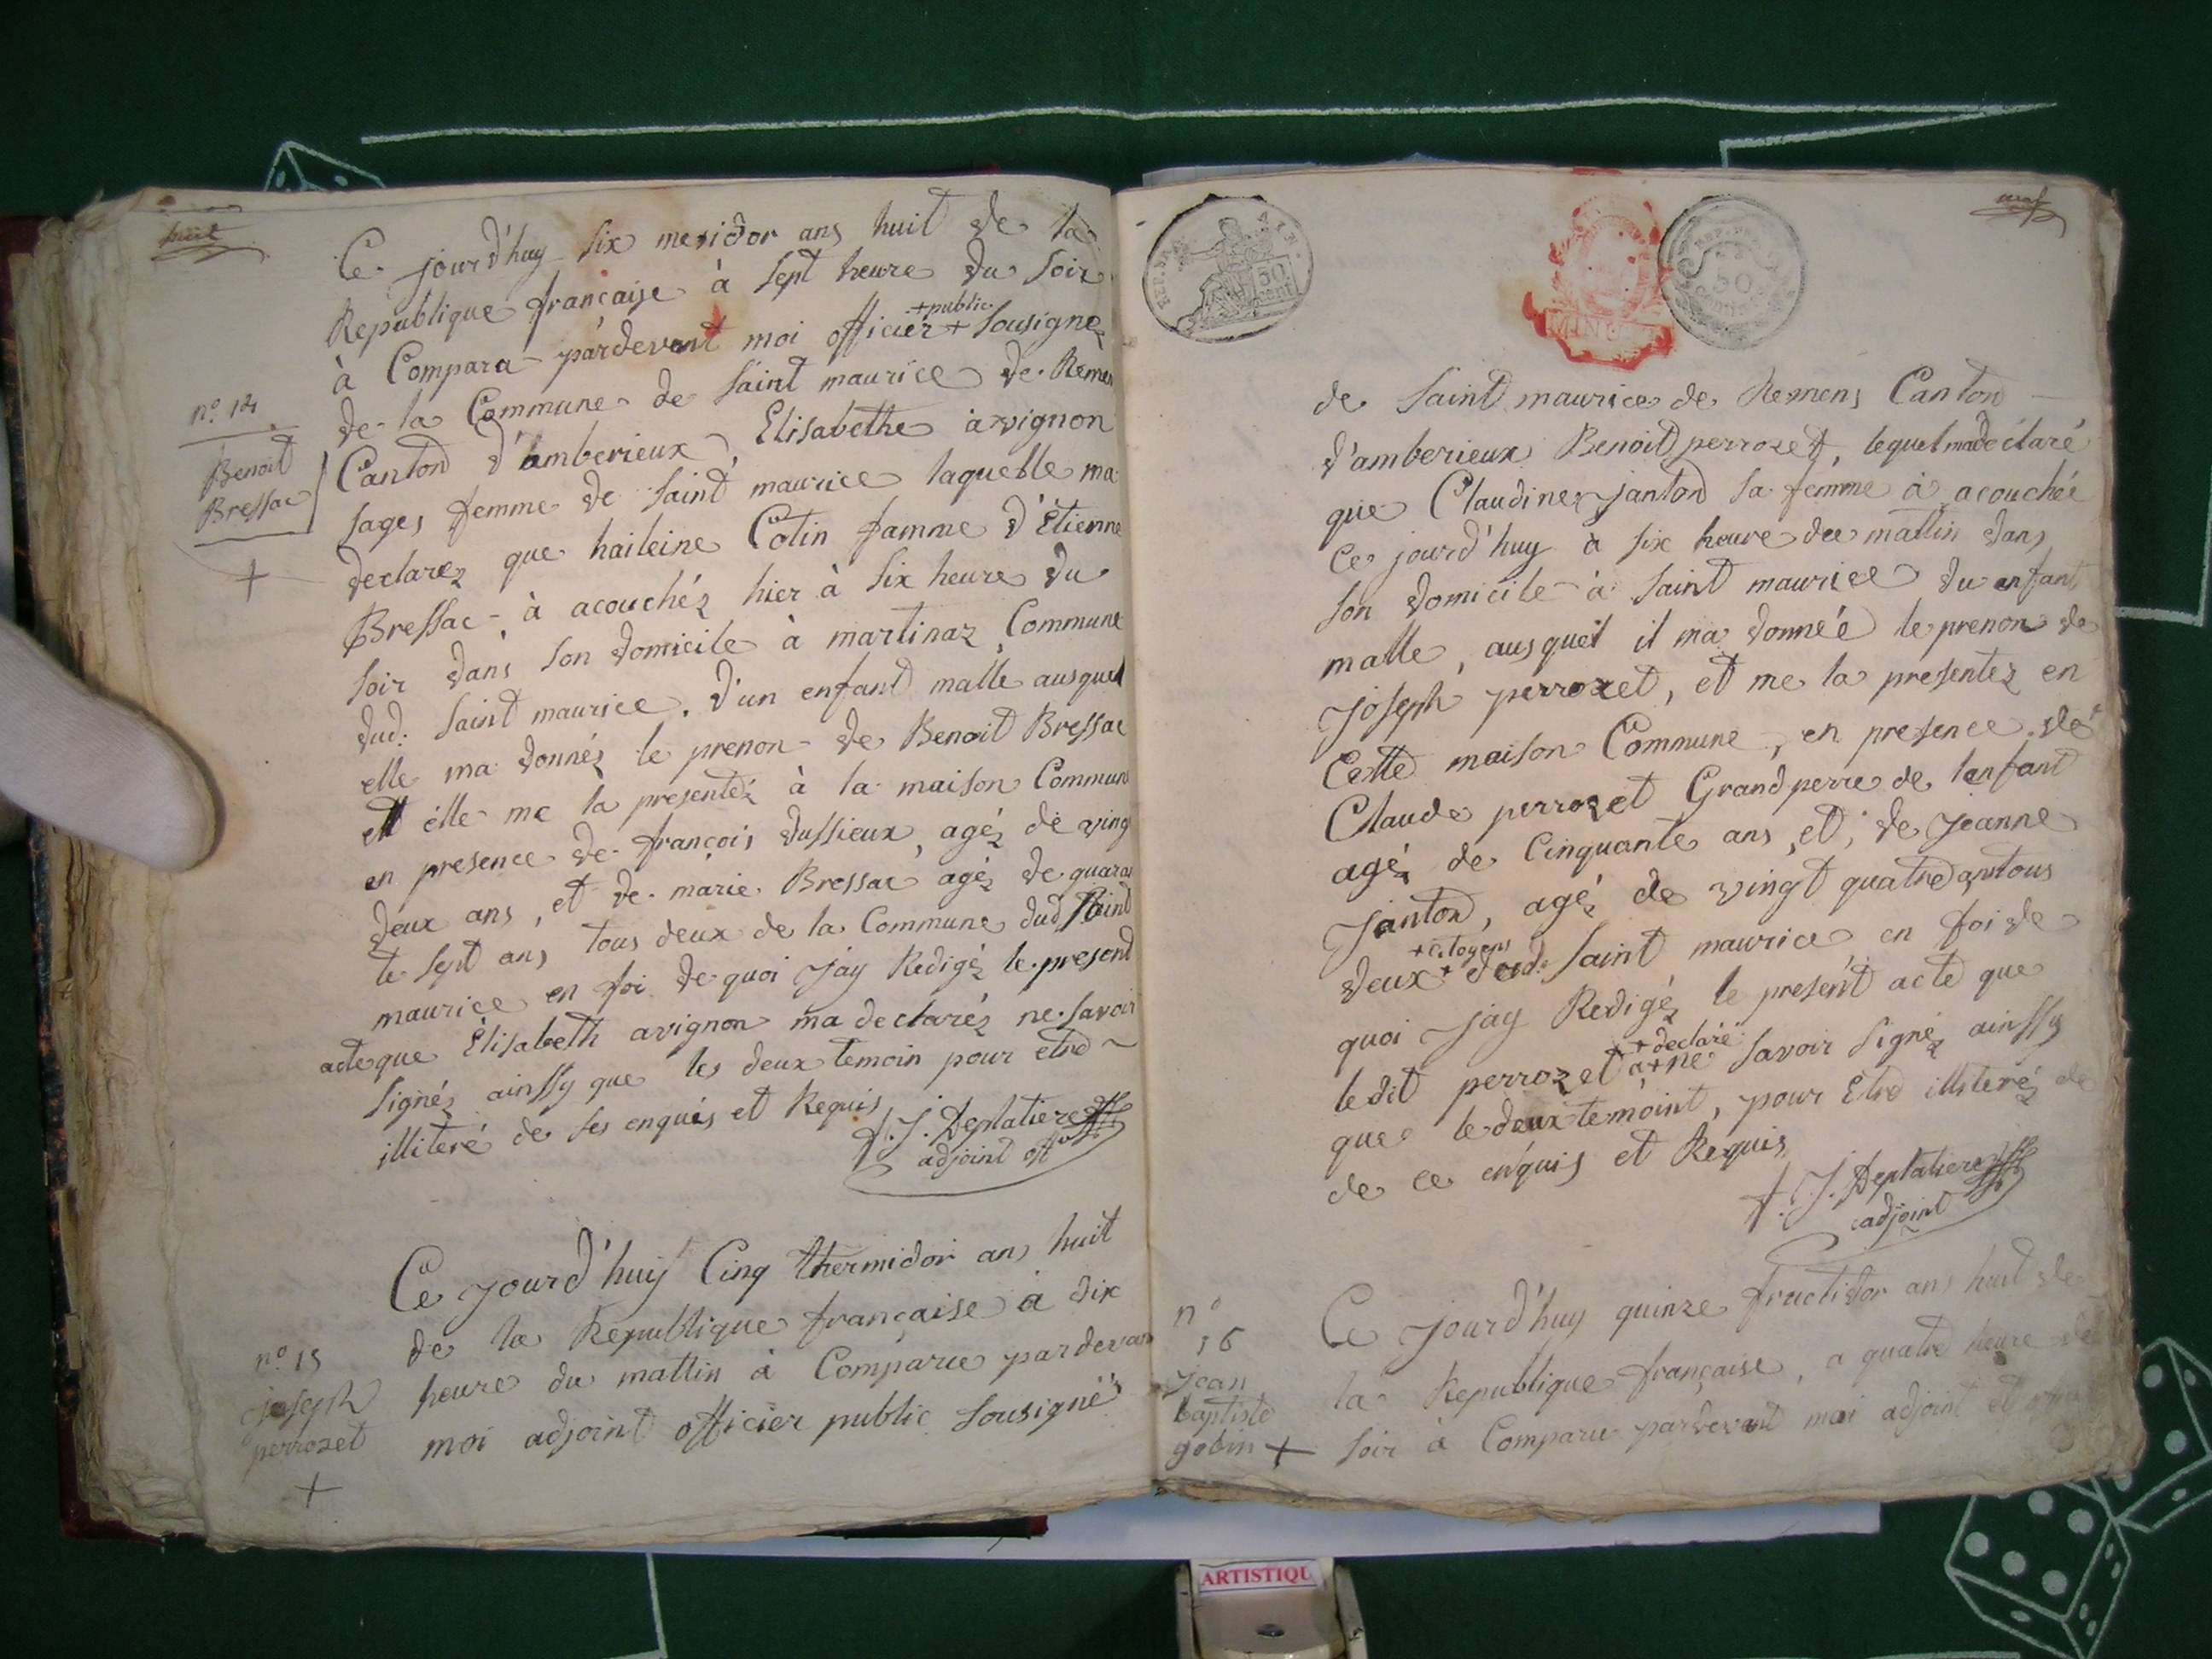 huit
Ce jourd'huy six mesidor ans huit de la
Republique française à sept heure du soir
+ public
à Compara pardevent moi officier + sousignez
de la Commune de saint maurice de Remen
n.° 14
Canton d'amberieux, Elisabethe avignon
Benoit
Bressac
sages femme de saint maurice laquelle ma
declarez que haileine Cotin famme d'Etienne
+
Bressac - à acouchéz hier à six heure du
soir dans son domicile à martinaz, Commune
dud: saint maurice. d'un enfant malle ausquel
elle ma donnéz le prenon de Benoit Bressac
ett elle me là presentéz à la maison Commun
en presence de françois dussieux, agéz de ving
deux ans, et de marie Bressac agéz de quaran
te sept ans tous deux de la Commune dud. saint
maurice en foi de quoi jay Redigéz le present
acte que Elisabeth avignon ma declaréz ne savoir
signéz ainssy que les deux temoin pour etre ~
illiteré de ses enquis et Requis
f. J. Deplatiere
adjoint off
Ce jourd'huy Cinq thermidor ans huit
de la Republique française à dix
n.° 15
joseph
perrozet
+
heure du mattin à Comparue pardevan
moi adjoint officier public sousignéz
neuf
REP. FRA.
50
cent
MINU
50
de saint maurice de Remens Canton -
d'amberieux Benoit perrozet, lequel ma déclaré
que Claudine janton sa femme à acouchée
ce jourd'huy à six heure du mattin dans
son domicile à saint maurice du enfant
malle, ausquel il ma donnéé le prenon de
joseph perrozet, et me la presentez en
Cette maison Commune, en presence de
Claude perrozet Grand perre de lenfant
agéz de Cinquante ans, et, de jeanne
janton, agéz de vingt quatre ans tous
+ citoyens
deux + dud. saint maurice en foi de
quoi jay Redigéz le present acte que
+ declaré
ledit perrozet à + ne savoir signéz ainssy
que le deux temoint, pour Etre illiteréz de
de ce enquis et Requis
f. J. Deplatiere
adjoint
n°
16
jean
baptiste
gobin +
Ce jourd'huy quinze fructidor ans huit de
la Republique française, a quatre heure de
soir à Comparu pardevant moi adjoint et
ARTISTIQU